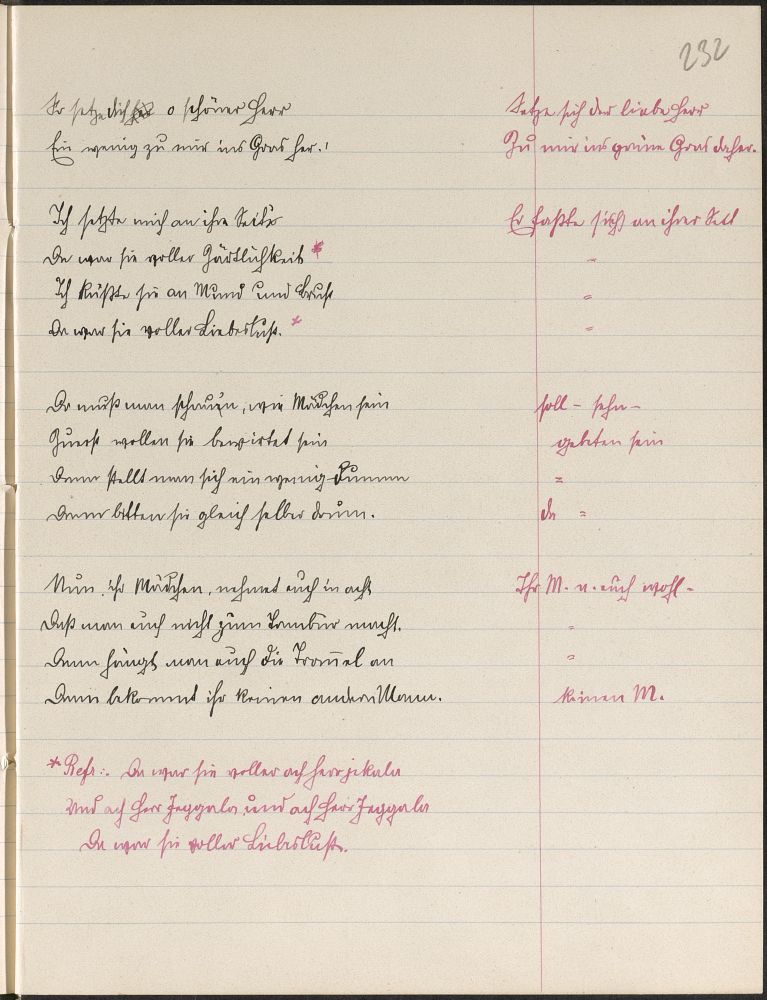 232
So setze dich o schöner Herr
Ein wenig zu mir ins Gras her.!
Ich setzte mich an ihre Seite
Da war sie voller Zärtlichkeit *
Ich küßte sie an Mund und Brust
Da war sie voller Liebeslust. *
Da muß man schauen, wie Mädchen sein
Zuerst wollen sie bewirtet sein
Dann stellt man sich ein wenig dumm
Dann bitten sie gleich selber drum.
Nun, ihr Mädchen, nehmet euch in acht
Daß man euch nicht zum Tambur macht.
Dann hängt man euch die Trommel an
Dann bekommt ihr keinen andern Mann.
* Refr.: Da war sie voller ach Herr jekala
Und ach Herr Jeggala und ach Herr Jeggala
Da war sie voller Liebeslust.
Setze sich der liebe Herr
Zu mir ins grüne Gras daher.
Er setzte sich an ihrer Seit
"
"
"
soll - sehn -
gebeten sein
"
da "
Ihr M. n. euch wohl -
"
"
keinen M.